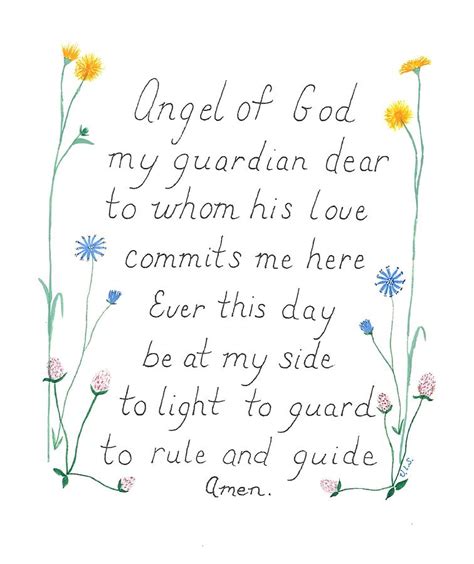 Angel of God
my guardian dear
to whom his love
commits me here
Ever this day
be at my side
to light to guard
to rule and guide
Amen.